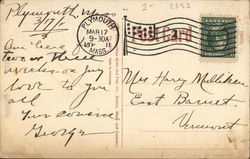 Plymouth, Mass.
3/17/11
Am here
two or three
weeks - on my
love to you
all
Your cousin
George
2- 2693
PLYMOUTH
MAR 17
9-30A
MASS.
Card
Mrs Harry Milliken
East Barnet,
Vermont